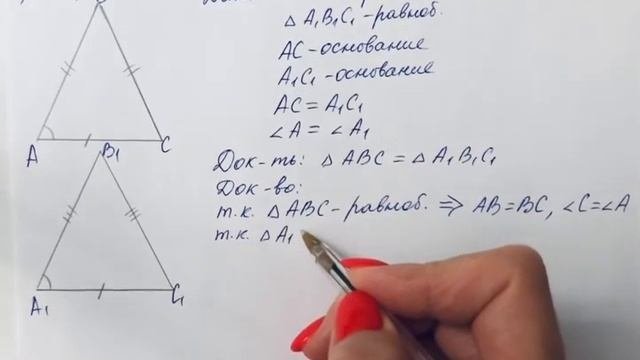 △ A₁B₁C₁ - равноб.
AC - основание
A₁C₁ - основание
AC = A₁C₁
∠A = ∠A₁
Док-ть: △ ABC = △ A₁B₁C₁
Док-во:
т.к. △ ABC - равноб. ⇒ AB = BC, ∠C = ∠A
т.к. △ A₁
A
C
B₁
A₁
C₁